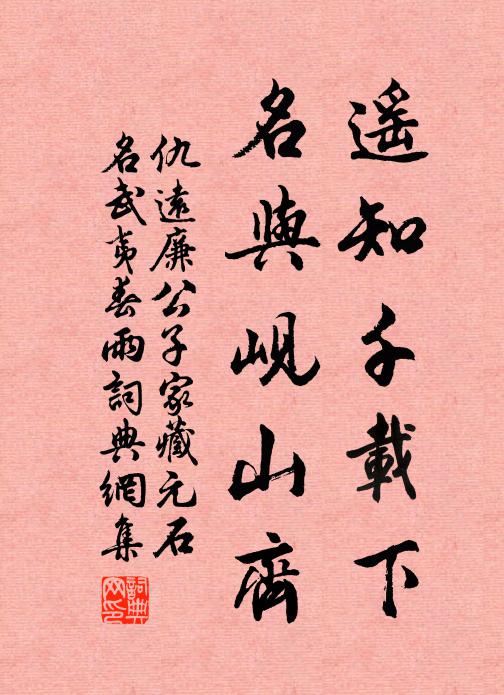 遥知千載下
名與峴山齊
仇遠廉公子家藏元石
名武夷春雨詞典網集
詞典網印